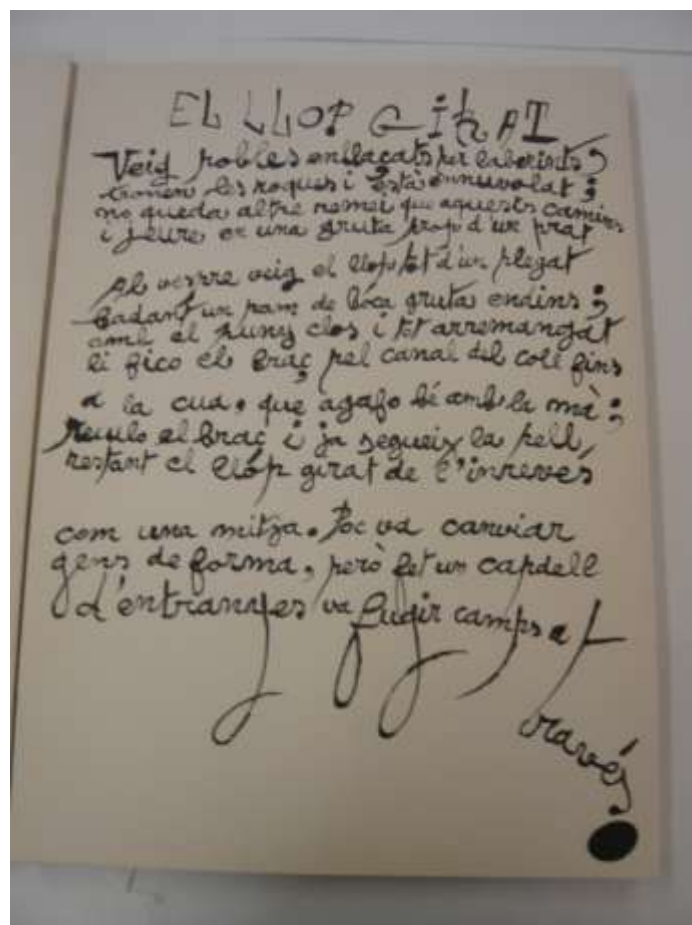 EL LLOP GIRAT
Veig robles enllaçats per laberints;
tronen les roques i està ennuvolat;
no queda altre remei que aquests camins
i jeure en una gruta prop d'un prat
Al vespre veig el llop tot d'un plegat
badant un pam de boca gruta endins;
amb el puny clos i tot arremangat
li fico el braç pel canal del coll fins
a la cua, que agafo bé amb la mà;
reculo el braç i ja segueix la pell,
restant el llop girat de l'inrevés
com una mitja. Poc va canviar
gens de forma, però fet un capdell
d'entranyes va fugir camps a t
ravés.